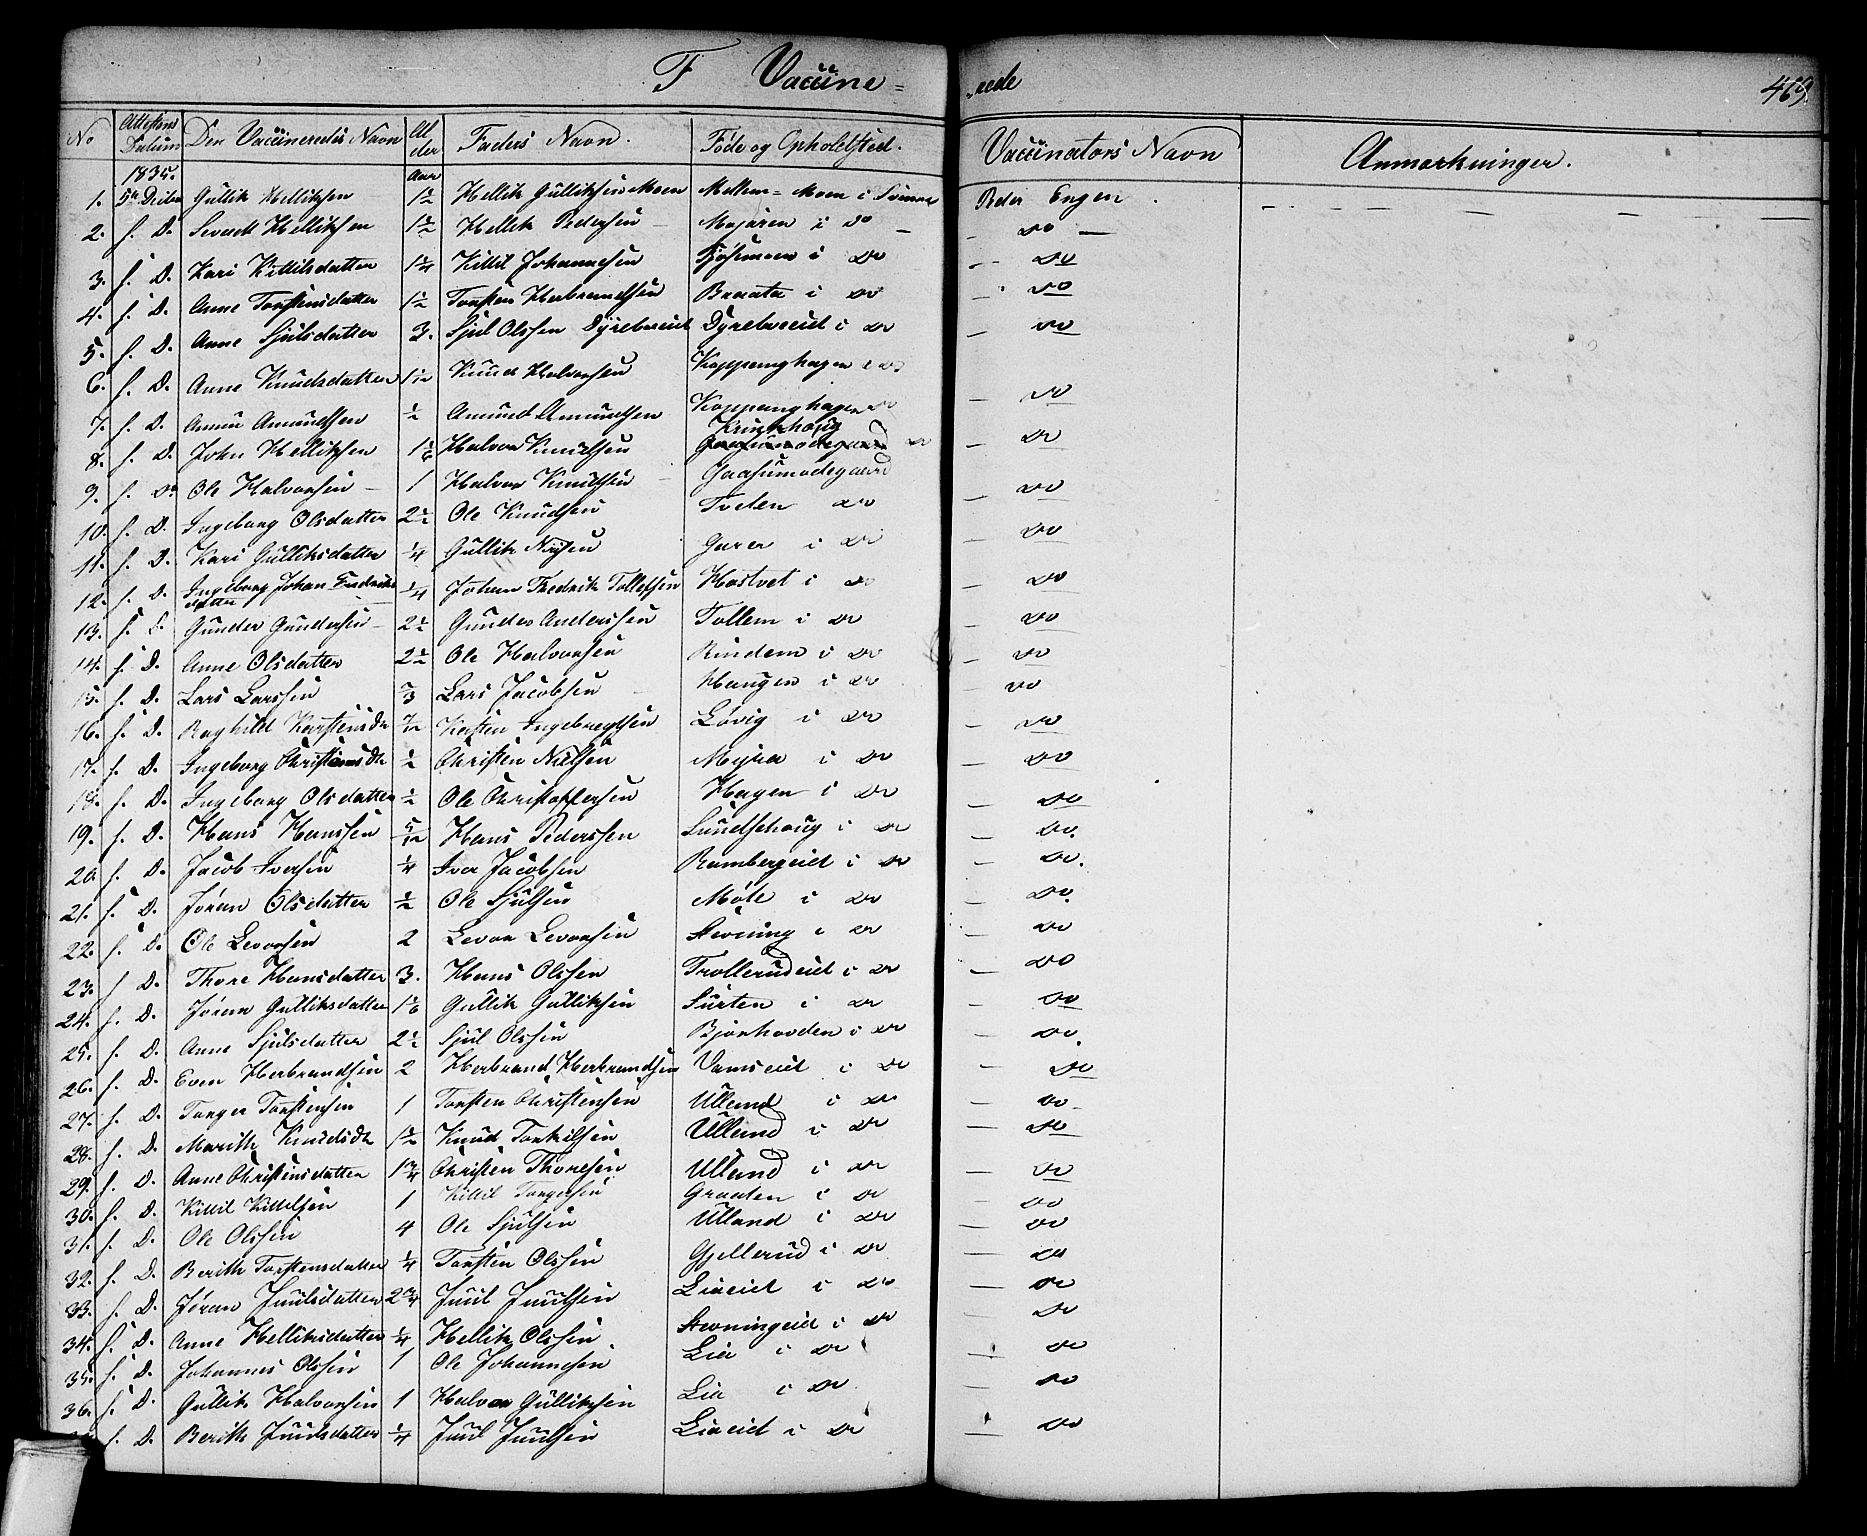 F Vaccine= =rede 469.
No Attestens Datum Den Vaccineredes Navn Alder Faders Navn. Føde og Opholdsted. Vaccinators Navn Anmærkninger.
1835. Aar
1. 5te Decbr Gullik Helliksen 1½ Hellik Gulliksen Moen Mellem=Moen i Peder Engen
2. s. D. Helliksen 1½ Hellik Pedersen Majoren i do do
3. s. D. Kari Kittilsdatter 1¼ Kittil Johannesen i do do
4. s. D. Anne Torstensdatter 1½ Torsten Herbrandsen Braata i do do
5. s. D. Anne Sjulsdatter 3. Sjul Olssen Dyrebureid Dyrebureid i do do
6. s. D. Anne Knudsdatter Knud Halvorsen Koppanghagen i do do
7. s. D. Amund Amundsen ½ Amund Amundsen Koppanghagen do do
8. s. D. John Helliksen Halvor Knudsen do
9. s. D. Ole Halvorsen 1 Halvor Knudsen do
10. s. D. Ingeborg Olsdatter 2½ Ole Knudsen Tveten do do
11. s. D. Kari Gulliksdatter ¼ Gullik i do do
12. s. D. Ingeborg Johan Fredriks datter ¼ Johan Fredrik Tollefsen Hostvet i do do
13. s. D. Gunder Gundersen 2½ Gunder Anderssen Tollem i do do
14. s. D. Anne Olsdatter 2½ Ole Halvorsen Rindem i do do
15. s. D. Lars Larssen ⅔ Lars Jacobsen Haugen i do do
16. s. D. Raghild Karstensdr 7/12 Karsten Ingebregtsen Løvig i do do
17. s. D. Ingeborg Christensdr ½ Christen Nielsen Myra i do do
18. s. D. Ingeborg Olsdatter ½ Ole Christoffersen Hagen i do do
19. s. D. Hans Hanssen 5/12 Hans Pederssen Sundsehaug i do do.
20. s. D. Jacob Iversen ¼ Iver Jacobsen Rambergeid i do do.
21. s. D. Jøran Olsdatter ½ Ole Sjulsen Møle i do do.
22. s. D. Ole Levorsen 2 Levor Levorsen Stevning i do do
23. s. D. Thore Hansdatter 3. Hans Olssen Trollerudeid i do do
24. s. D. Jøran Gulliksdatter 1⅙ Gullik Gulliksen Surten i do do
25. s. D. Anne Sjulsdatter 2½ Sjul Olssen Bjørnhovden i do do.
26. s. D. Even Herbrandsen 2 Herbrand Herbrandsen Vamseid i do do
27. s. D. Torger Torstensen 1 Torsten Christensen Ulland i do do
28. s. D. Marith Knudsdr 1½ Knud Torkilsen Ulland i do do
29. s. D. Anne Christensdatter 1¾ Christen Thoresen Ulland i do do
30. s. D. Kittil Kittilsen 1 Kittil Torgersen Graaten i do do
31. s. D. Ole Olssen 4 Ole Sjulsen Ulland i do do
32. s. D. Berith Torstensdatter ¼ Torsten Olssen Gjellerud i do do
33. s. D. Jøran Juulsdatter 2¾ Juul Juulsen Liaeid i do do
34. s. D. Anne Helliksdatter ¼ Hellik Olssen Stevningeid i do do
35. s. D. Johannes Olssen 1 Ole Johannesen Lia i do do
36. s. D. Gullik Halvorsen 1 Halvor Gulliksen Lia i do do
s. D. Berith Juulsdatter ¼ Juul Juulsen Liaeid i do do